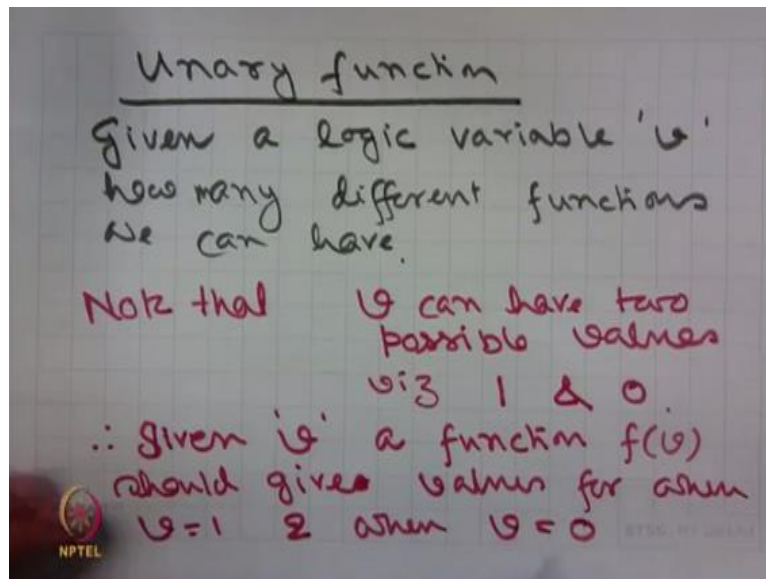 Unary function
Given a logic variable 'v'
how many different functions
we can have.
Note that v can have two
possible values
viz 1 & 0
∴ given 'v' a function f(v)
should gives values for when
v=1 & when v=0
NPTEL